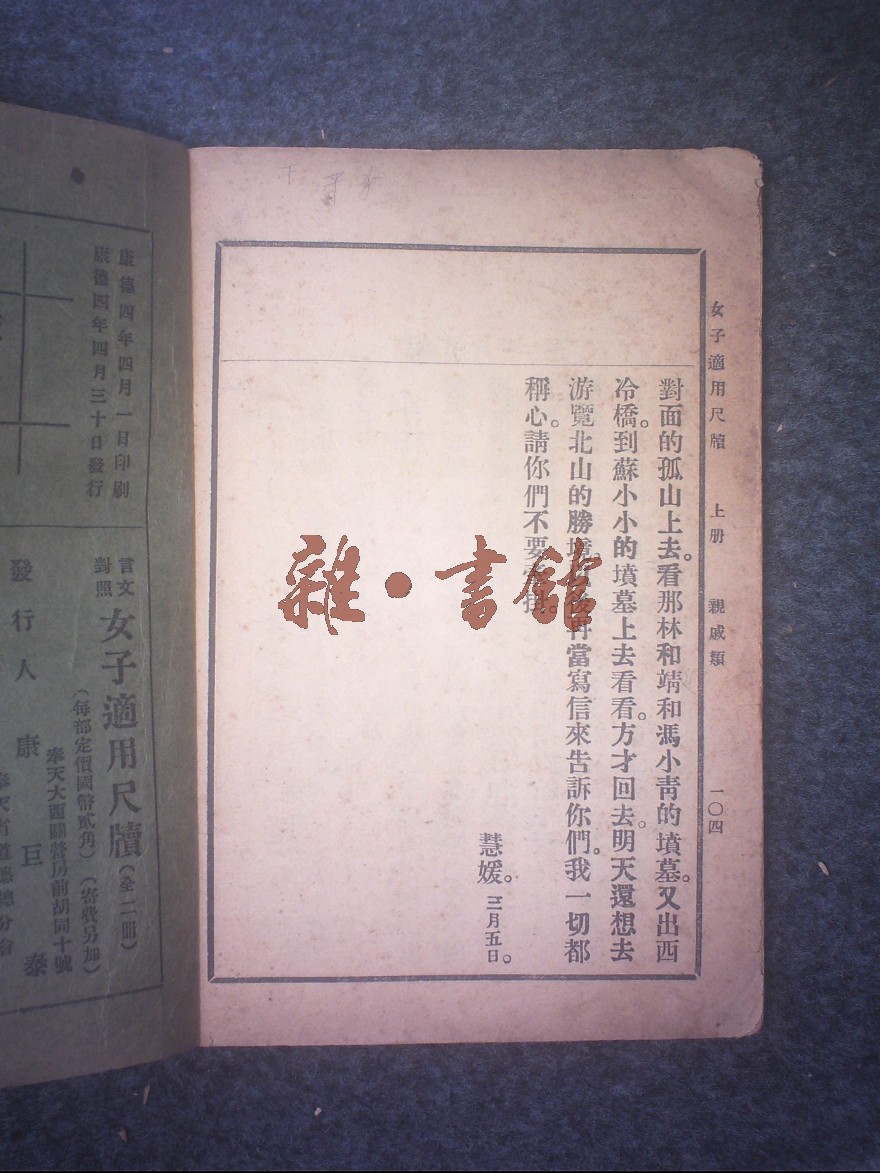 女子適用尺牘　上册　親戚類　一〇四
對面的孤山上去。看那林和靖和馮小青的墳墓。又出西
冷橋。到蘇小小的墳墓上去看看。方才回去。明天還想去
游覽北山的勝境。後再當寫信來告訴你們。我一切都
稱心。請你們不要掛。
慧媛。三月五日。
雜・書館
康德四年四月一日印刷
康德四年四月三十日發行
言文對照
女子適用尺牘（全二冊）
（每部定價國幣貳角）（寄費另加）
奉天大西關營房前胡同十號
發行人　康巨泰